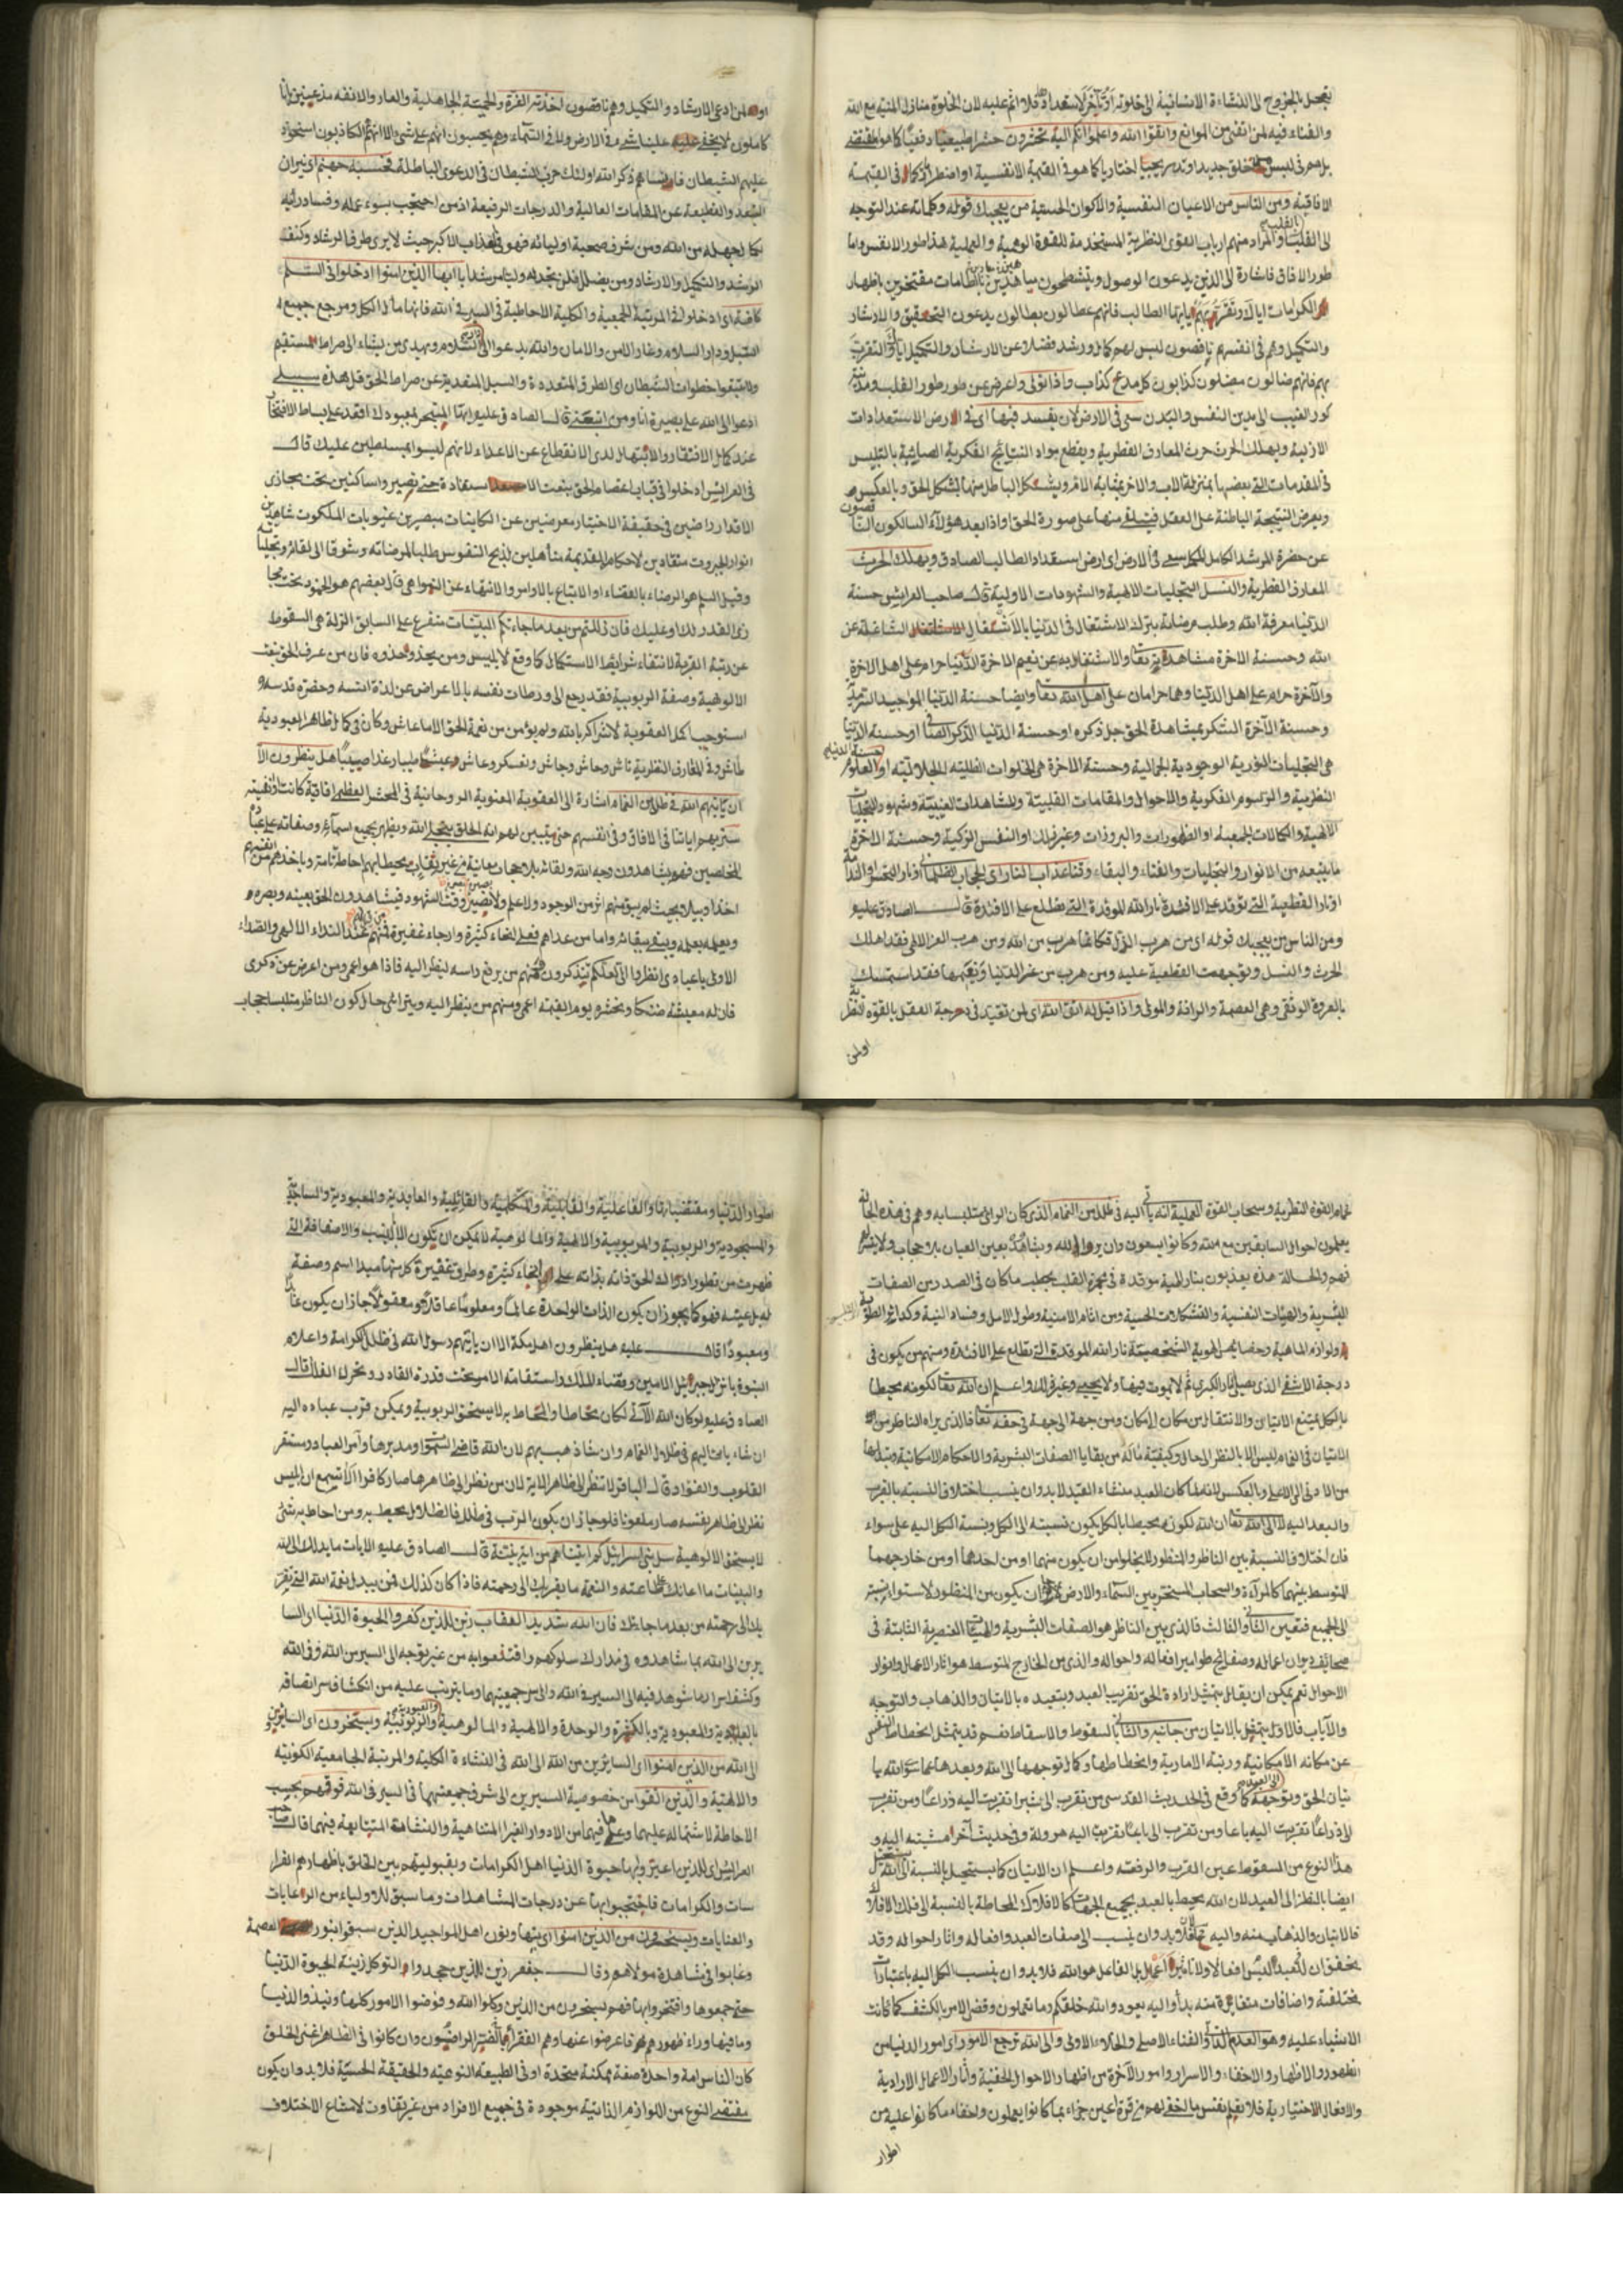 يتعجل بالخروج الى النشاءة الانسانية الى خلوته او تأخر لاستعداد فلا اثم عليه لان الخلوة منازل المنية مع الله
والفناء فيه لمن اتقى من الموانع واتقوا الله واعلموا انكم اليه تحشرون حشرا طبيعيا دفعيا كما هو
بل هم في لبس من خلق جديد او تدريجيا اختياريا كما هو في القيمة الانفسية او اضطراريا كما في القيمة
الافاقية ومن الناس من الاعيان النفسية والاكوان الحسية من يعجبك قوله وكلماته عند التوجه
الى القلب والمراد منهم ارباب القوى النظرية المستخدمة للقوة الوهمية والعملية هذا طور الانفس واما
طور الافاق فاشارة الى الذين يدعون الوصول ويتشطحون بالطامات مفتخرين باظهار
الكرامات اياك وتقربهم ايها الطالب فانهم عطالون بطالون يدعون التحقيق والارشاد
والتكميل وهم في انفسهم ناقصون ليس لهم كمال ورشد فضلا عن الارشاد والتكميل اياك والتقرب
بهم فانهم ضالون مضلون كذابون كل مدع كذاب واذا تولى واعرض عن طور طور القلب ومدينة
كور الغيب الى مدين النفس والبدن سعى في الارض لان يفسد فيها اى في ارض الاستعدادات
الازلية ويهلك الحرث حرث المعارف الفطرية ويقطع مواد النتائج الفكرية بالتلبيس
في المقدمات التى بعضها بمنزلة الاب والاخر بمثابة الام ويشكل الباطل منها بشكل الحق وبالعكس
ويعرض النتيجة الباطنة على العقل منها على صورة الحق واذا بعد هؤلاء السالكون الناقصون
عن حضرة المرشد الكامل المكمل سعى في الارض اى ارض استعداد الطالب الصادق ويهلك الحرث
المعارف الفطرية والنسل التجليات الالهية والشهودات الاولية قال صاحب العرايس حسنة
الدنيا معرفة الله وطلب مرضاته بترك الاشتغال في الدنيا بالاشغال الشاغلة عن
الله وحسنة الاخرة مشاهدة تعا والاشتغال به عن نعيم الاخرة الدنيا حرام على اهل الاخرة
والآخرة حرام على اهل الدنيا وهما حرامان على اهل الله تعا وايضا حسنة الدنيا المواجيد
وحسنة الآخرة السكر بمشاهدة الحق جل ذكره او حسنة الدنيا الذكر الصافى او حسنة الدنيا
هى التجليات النورية الوجودية الجمالية وحسنة الاخرة هى الخلوات الظلية الجلالية او العلوم
النظرية والرسوم الفكرية والاحوال والمقامات القلبية والمشاهدات الغيبية وشهود التجليات
الالهية والكمالات الجمعية او الظهورات والبروزات وغير ذلك او النفس الزكية وحسنة الاخرة
ما يتبعه من الانوار والتجليات والفناء والبقاء وقنا عذاب النار اى الحجاب الظلمانى او نار التحسر والندامة
او نار القطعية التى توقد على الافئدة نار الله الموقدة التى تطلع على الافئدة قال الصادق عليه
ومن الناس من يعجبك قوله اى من هرب الذل فكانما هرب من الله ومن هرب العز الالهى فقد اهلك
الحرث والنسل وتوجهت القطعية عليه ومن هرب من عز الدنيا ونعيمها فقد استمسك
بالعروة الوثقى وهى العصمة والرافة والمولى واذا قيل له اتق الله اى لمن تقيد في درجة العقل بالقوة النظرية
اولمن
او لمن ادعى الارشاد والتكميل وهم ناقصون اخذته العزة والحمية الجاهلية والعار والانفة مذعنين بانا
كاملون لا يخفى علينا شئ في الارض ولا في السماء وهم يحسبون انهم على شئ الا انهم هم الكاذبون استحوذ
عليهم الشيطان فانساهم ذكر الله اولئك حزب الشيطان في الدعوى الباطلة فحسبه جهنم اى نيران
البعد والقطيعة عن المقامات العالية والدرجات الرفيعة اذ من احتجب بسوء عمله وفساد رائه
بكمال جهله من الله ومن شرف صحبة اوليائه فهو في العذاب الاكبر حيث لا يرى طرق الرشاد وكنف
الرشد والتكميل والارشاد ومن يضلل فلن تجد له وليا مرشدا يا ايها الذين امنوا ادخلوا في السلم
كافة اى ادخلوا في المرتبة الجمعية والكلية الاحاطية في السير في الله فانها مآل الكل ومرجع جميع
السبل ودار السلام ودار الامن والامان والله يدعوا الى دار السلام ويهدى من يشاء الى صراط مستقيم
ولا تتبعوا خطوات الشيطان اى الطرق المتعددة والسبل المتعدية عن صراط الحق قل هذه سبيلى
ادعوا الى الله على بصيرة انا ومن اتبعنى قال الصادق عليه ايها المتبحر لمعبودك اقعد على بساط الافتخار
عند كمال الافتقار والابتهال لدى الانقطاع عن الاعداء لانهم ليسوا بمسلطين عليك قال
في العرايس ادخلوا في قباب اعتصام الحق بنعت الاستعاذة حتى تصير واساكنين تحت مجارى
الاقدار راضين في حقيقة الاختيار معرضين عن الكاينات مبصرين غيوبات الملكوت شاهدين
انوار الجبروت منقادين لاحكام القديمة متأهلين لذبح النفوس طلبا لمرضاته وشوقا الى لقائه وتجلياته
وقيل السلم هو الرضاء بالقضاء او الاتباع بالاوامر والانتهاء عن النواهى قال بعضهم هو الخمود تحت مجا
رى القدر لك او عليك فان زللتم من بعد ما جاءتكم البينات متفرع على السابق الزلة هى السقوط
عن رتبة القربة لانتفاء شرائط الاستكمال كما وقع لابليس ومن يحذو حذوه فان من عرف الحق بنعت
الالوهية وصفة الربوبية فقد رجع الى ورطات نفسه بالاعراض عن لذة انسه وحضرة قدسه
استوجب اكمل العقوبة لاشراكه بالله ولم يؤمن من نعمة الحق الا ما عاش وكان في كمال ظاهر العبودية
هل ينظرون الا
ان يأتيهم الله في ظلل من الغمام اشارة الى العقوبة المعنوية الروحانية في المحشر العظمى افاقية كانت او نفسية
سنريهم اياتنا في الافاق وفي انفسهم حتى يتبين لهم انه الحق يتجلى الله ويظهر بجميع اسمائه وصفاته على عباده
المخلصين فهم يشاهدون وجه الله ولقائه بلا حجاب معاينة من غير نقاب يحيط بهم احاطة تامة وياخذهم من انفسهم
اخذا وبيلا بحيث لم يبق منهم اثر من الوجود ولا علم ولا بصير وقت الشهود فيشاهدون الحق بعينه وبصره
ويعلمه بعلمه ويبقى ببقائه واما من عداهم فعلى انحاء كثيرة وارجاء غفيرة فمنهم عند النداء الالهى والصداء
الاولى يا عبادى انظروا الى لعلكم تتذكرون فمنهم من يرفع راسه لينظر اليه فاذا هو اعمى ومن اعرض عن ذكرى
فان له معيشة ضنكا ونحشره يوم القيمة اعمى ومنهم من ينظر اليه ويترائى حال كون الناظر متلبسا بحجاب
غمام القوة النظرية وسحاب القوة العملية انه يأتى اليه في ظلل من الغمام الذى كان الرائى متلبسا به وهم في هذه الحالة
يعلمون احوال السابقين مع الله وكانوا يسعون وان يروا الله ويشاهده بعين العيان بلا حجاب
فهم والحالة هذه يعذبون بنار الهية موقدة في مجمرة القلب يحطب ما كان في الصدر من الصفات
البشرية والهيئات النفسية والتشكلات الحسية ومن اثام الامنية وطول الامل وفساد النية
ولوازم الماهية وخصايص الهوية الشخصية نار الله الموقدة التى تطلع على الافئدة ومنهم من يكون في
درجة الاشقى الذى يصلى النار الكبرى ثم لا يموت فيها ولا يحيى وغير ذلك واعلم ان الله تعا لكونه محيطا
بالكل يمتنع الاتيان والانتقال من مكان الى مكان ومن جهة الى جهة في حقه تعا فالذى يراه الناظر من
الاتيان في الغمام ليس الا بالنظر الى حاله وكيفية ما له من بقايا الصفات البشرية والاحكام الامكانية
من الادنى الى الاعلى وبالعكس فلما كان العبد منشاء القيد لابد وان ينسب اختلاف النسبة بالقرب
والبعد اليه لا الى الله تعا ان الله لكونه محيطا بالكل يكون نسبته الى الكل ونسبة الكل اليه على سواء
فان اختلاف النسبة بين الناظر والمنظور لا يخلو من ان يكون منهما او من احدهما او من خارجهما
المتوسط بينهما كالمرآة والسحاب المسخر بين السماء والارض ان يكون من المنظور لاستواء نسبته
الى الجميع فتعين الثانى والثالث فالذى بين الناظر هو الصفات البشرية والهيئات العنصرية الثابتة في
صحائف ديوان اعماله وصفائح طوامير افعاله واحواله والذى من الخارج المتوسط هو اثار الاعمال وانوار
الاحوال نعم يمكن ان يقال بتمثيل ارادة الحق تقريب العبد وبتعيده بالاتيان والذهاب والتوجه
والآياب فالاول يتمثل بالاتيان من جانبه والثانى بالسقوط والاسقاط نعم قد يتمثل انحطاط النفس
عن مكانه الامكانية ورتبة الامارية وانحطاطها وكمال توجهها الى الله وبعدها عما سوى الله با
تيان الحق وتوجهه الى العبد كما وقع في الحديث القدسى من تقرب الى شبرا تقربت اليه ذراعا ومن تقرب
الى ذراعا تقربت اليه باعا ومن تقرب الى باعا تقربت اليه هرولة وفي حديث آخر امشيته اليه و
هذا النوع من السقوط عين القرب والرفعة واعلم ان الاتيان كما يستحيل بالنسبة الى الله يستحيل
ايضا بالنظر الى العبد لان الله يحيط بالعبد بجميع الجهات كالافلاك المحاطة بالنسبة الى فلك الافلاك
فالاتيان والذهاب منه واليه فلابد وان ينسب الى صفات العبد وافعاله واثار احواله وقد
يتحقق ان للعبد ليس افعالا ولا تأثير اعمال بل الفاعل هو الله فلابد وان ينسب الكل اليه باعتبارات
مختلفة واضافات متغايرة منه بدأ واليه يعود والله خلقكم وما تعملون وقضى الامر بالكشف كما كانت
الاشياء عليه وهو العدم الذاتى والفناء الاصلى والخلاء الاولى والى الله ترجع الامور اى امور الدنيا من
الظهور والاظهار والاخفاء والاسرار وامور الآخرة من اظهار الاحوال الخفية وآثار الاعمال الارادية
والافعال الاختيارية فلا تعلم نفس ما اخفى لهم من قرة اعين جزاء بما كانوا يعملون واخفاء ما كانوا عليه من
اطوار
اطوار الدنيا ومقتضياتها والفاعلية والقابلية والمتكلمية والقائلية والعابدية والمعبودية والساجدية
والمسجودية والربوبية والمربوبية والالهية والمالوهية لا يمكن ان يكون الا بالنسب والاضافة التى
ظهرت من تطور ادراك الحق ذاته بذاته على انحاء كثيرة وطرق غفيرة كل منها مبدا اسم وصفة
له بل عينه فهو كما يجوز ان يكون الذات الواحدة عالما ومعلوما عاقلا ومعقولا جاز ان يكون عابدا
ومعبودا قال عليه هل ينظرون اهل مكة الا ان ياتيهم رسول الله في ظلل الكرامة واعلام
النبوة بانزال جبرئيل الامين وقضاء الملك واستقامة الامر تحت قدرة القادر وتحرك الفلك قال
الصادق عليه لو كان الله الآتى لكان محاطا والمحاط به لا يستحق الربوبية ويمكن قرب عباده اليه
ان شاء باتيا اليهم في ظلال الغمام وان شاذ هب بهم لان الله قاضى السموات ومدبرها وآمر العباد ومستقر
القلوب والفؤاد قال الباقر لا تنظر الى ظاهر الاية لان من نظر الى ظاهرها صار كافرا الا تسمع ان ابليس
نظر الى ظاهر نفسه صار ملعونا فلو جاز ان يكون الرب في ظلل فالظلال محيط به ومن احاط به شئ
لا يستحق الالوهية سل بنى اسرائيل كم اتيناهم من اية بينة قال الصادق عليه الايات ما يدلك الى الله
والبينات ما اعانك على طاعته والنعمة ما يقربك الى رحمته فاذا كان كذلك فمن يبدل نعمة الله التى تقر
بك الى رحمته من بعد ما جاءتك فان الله شديد العقاب زين للذين كفروا الحيوة الدنيا اى السا
يرين الى الله بما شاهدوه في مدارك سلوكهم واقتنعوا به من غير توجه الى السير من الله وفي الله
وكشف اسرار ما شوهد فيه الى السير في الله والى سر جمعيتهما وما يترتب عليه من انكشاف سر اتصافه
بالعابدية والمعبودية وبالكثرة والوحدة والالهية والمالوهية والربوبية والعبودية ويسخرون اى السايرين
الى الله من الذين امنوا اى السايرين من الله الى الله في النشاءة الكلية والمرتبة الجامعية الكونية
والالهية والذين اتقوا من خصوصية السيرين الى شرف جمعيتهما في السير في الله فوقهم بحسب
الاحاطة لاشتماله عليهما وعلى ما فيهما من الادوار الغير المتناهية والنشاءة المتتابعة فيهما قال صاحب
العرايس اى للذين اغتروا بها حيوة الدنيا اهل الكرامات وبقبوليتهم بين الخلق باظهارهم الفرا
سات والكرامات فاحتجبوا بها عن درجات المشاهدات وما سبق للاولياء من الرعايات
والعنايات ويسخرون من الذين امنوا اى يتهاونون اهل المواجيد الذين سبقوا بنور العصمة
وغابوا في مشاهدة مولاهم وقال جعفر زين للذين جحدوا التوكل زينة الحيوة الدنيا
حتى جمعوها وافتخروا بها فهم يسخرون من الذين وكلوا الله وفوضوا الامور كلها ونبذوا الدنيا
وما فيها وراء ظهورهم فاعرضوا عنها وهم الفقراء الراضيون وان كانوا في الظاهر اغنى الخلق
كان الناس امة واحدة صفة ممكنة متحدة او في الطبيعة النوعية والحقيقة الحسية فلابد وان يكون
مقتضى النوع من اللوازم الذاتية موجودة في جميع الافراد من غير تفاوت لامتناع الاختلاف